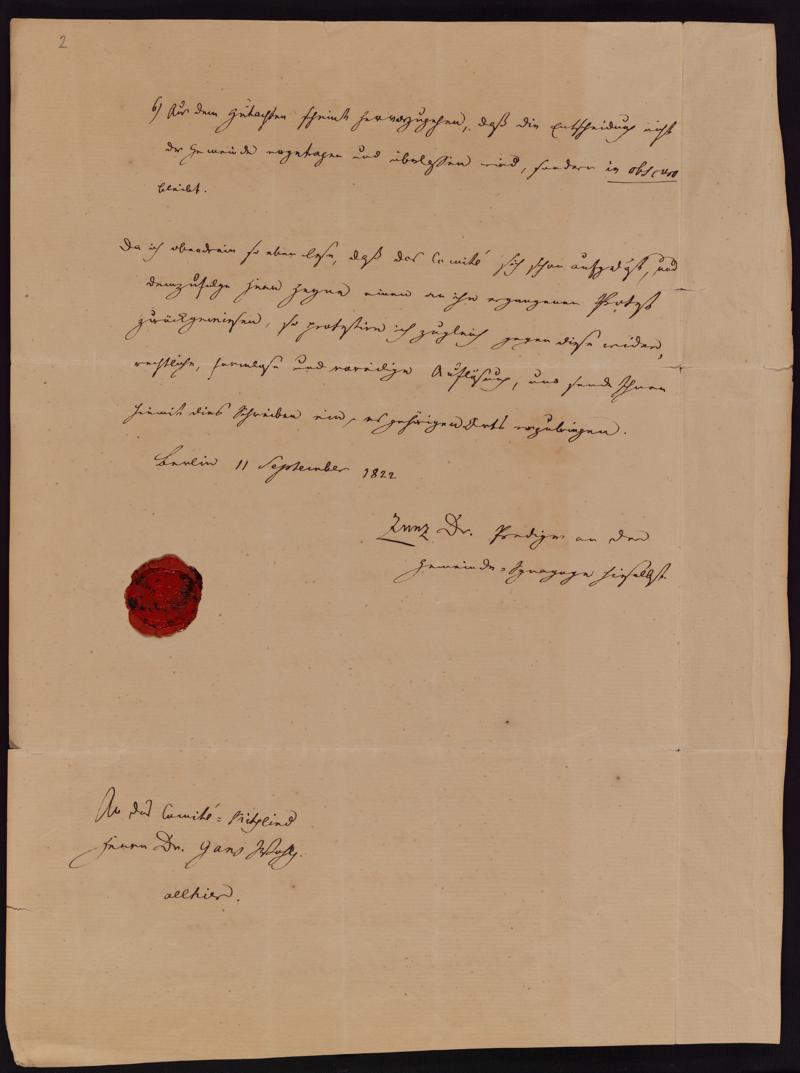 2
6) Aus dem Gutachten scheint hervorzugehen, daß die Entscheidung nicht
der Gemeinde vorgetragen und überlassen wird, sondern in obscuro
bleibt.
Da ich obendrein so eben lese, daß das Comité sich schon aufgelöst, und
demzufolge Herr Heyne einen an ihn ergangenen Protest
zurückgewiesen, so protestire ich zugleich gegen diese wider-
rechtliche, formlose und voreilige Auflösung, und sende Ihnen
hiemit dies Schreiben ein, es gehörigen Orts vorzubringen.
Berlin 11 September 1822
Zunz Dr. Prediger an der
Gemeinde-Synagoge hieselbst
An das Comité-Mitglied
Herrn Dr. Gans
allhier.